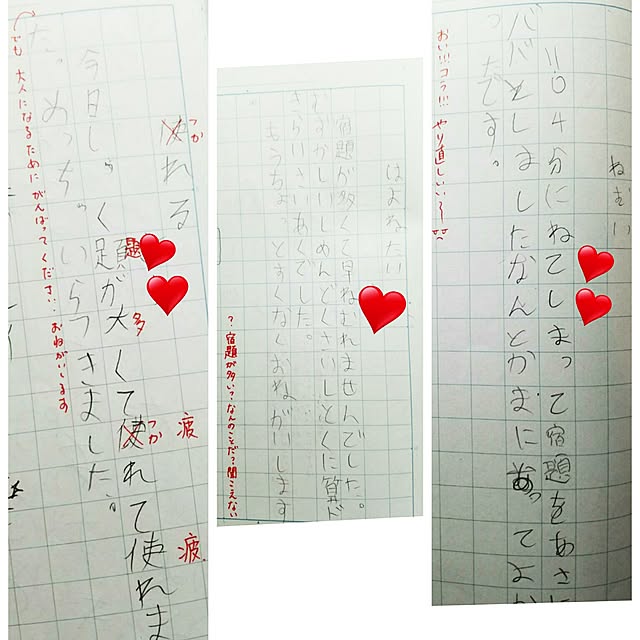 ねむい
11:04分にねてしまって宿題をあさに
バババとしましたなんとかまにあってよか
ったです。
おい!!!コラ!!! やり直しいい〜
はよねたい
宿題が多くて早ねむれませんでした。
むずかしいしめんどくさいしとくに算ド
きらいさいあくでした。
もうちょっとすくなくおねがいします
?宿題が多いっ?なんのことだ?聞こえない
つか
使れる
疲
疲
題
多
つか
今日しゅく題が大くて使れて使れま
た。めっちゃいらつきました。
でも 大人になるために がんばってください。おねがいします